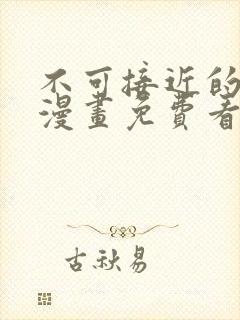 不可接近的
漫畫免費看
古秋易